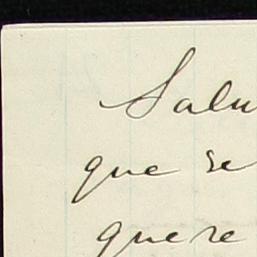 Salu
que se
quere